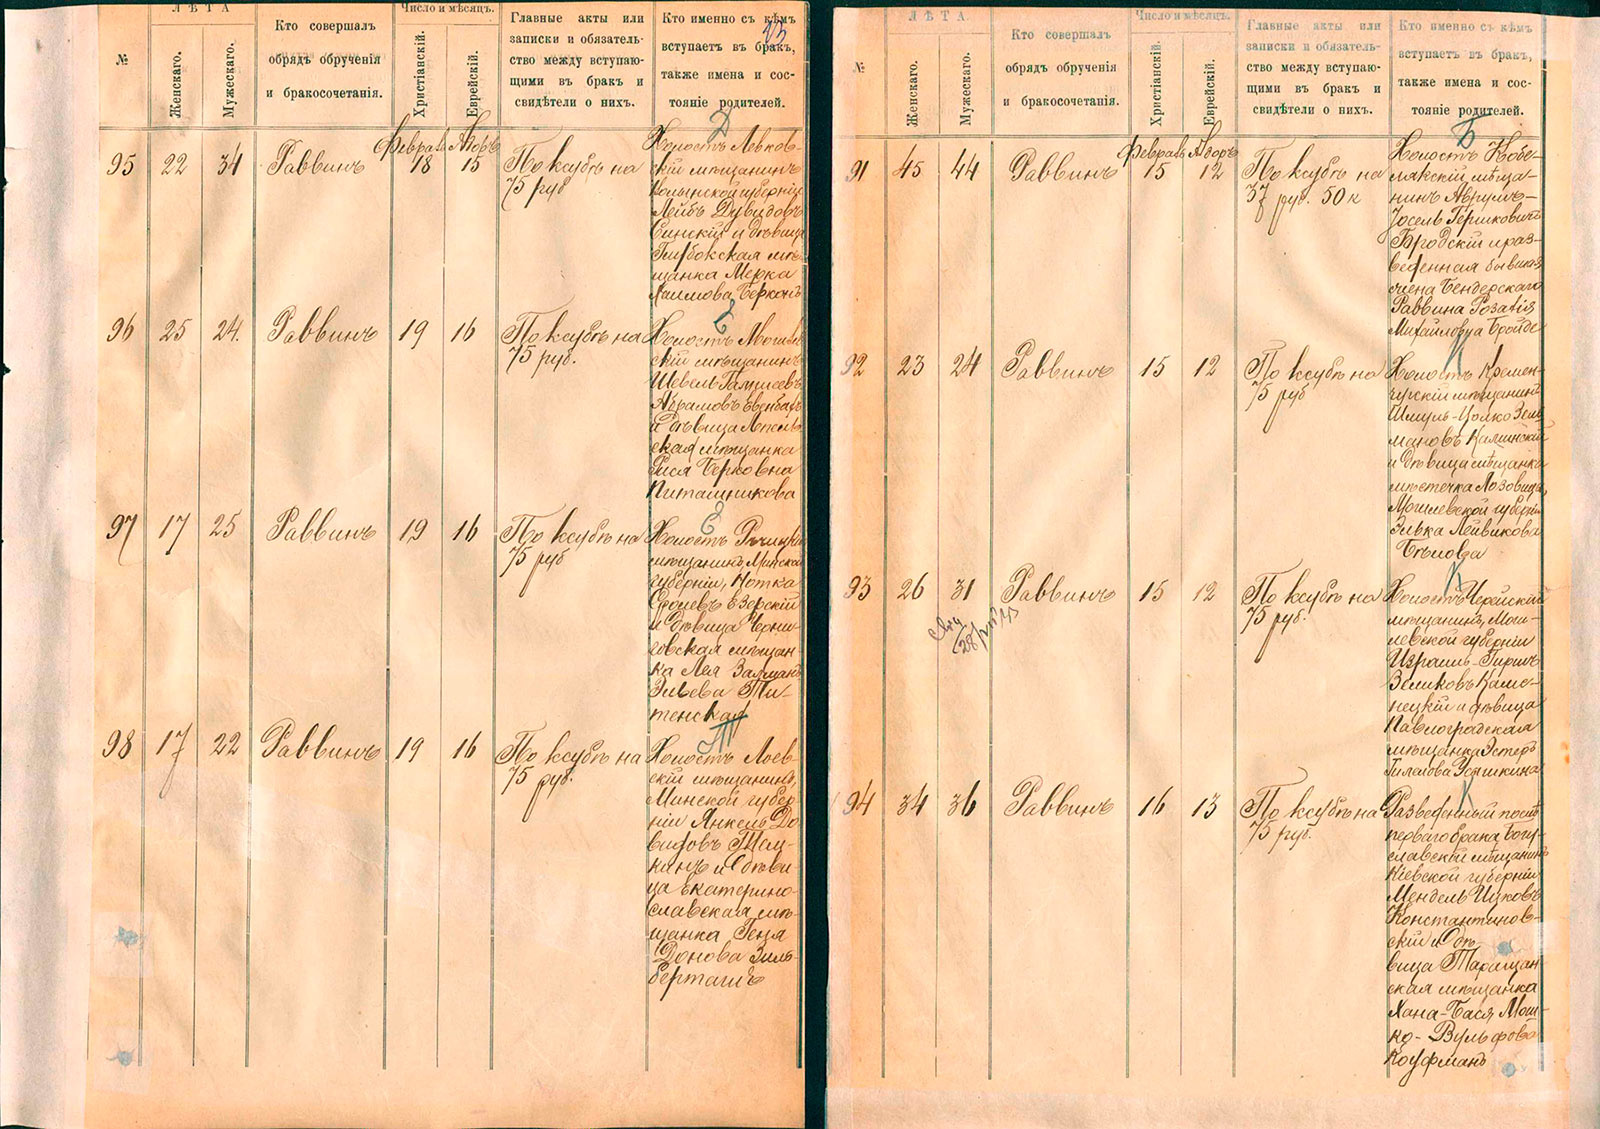 №
ЛѢТА
Женскаго.
Мужескаго.
Кто совершалъ
обрядъ обрученія
и бракосочетанія.
Число и мѣсяцъ.
Христіанскій.
Еврейскій.
Главные акты или
записки и обязатель-
ство между вступаю-
щими въ бракъ и
свидѣтели о нихъ.
Кто именно съ кѣмъ
вступаетъ въ бракъ,
также имена и сос-
тояніе родителей.
Д
95 22 34 Раввинъ
Февраль 18
Адоръ 15
По ксубѣ на
75 руб
Холостъ Левков-
скій мѣщанинъ
Волынской губерніи
Лейбъ Дувидовъ
и дѣвица
Глубокская мѣ-
щанка Мерка
Хаимова
96 25 24. Раввинъ 19 16
По ксубѣ на
75 руб.
Холостъ
скій мѣщанинъ
Шевель
Абрамовъ
и дѣвица
ская мѣщанка
Рися Берковна
Питашникова
97 17 25 Раввинъ 19 16
По ксубѣ на
75 руб
Холостъ Рѣчицкій
мѣщанинъ, Минской
губерніи, Нотка
Езерскій
и дѣвица Черни-
говская мѣщан-
ка Лея Залман
Эльева Ти-
тенская
98 17 22 Раввинъ 19 16
По ксубѣ на
75 руб.
Холостъ Лоев-
скій мѣщанинъ,
Минской губер-
ніи Янкель До-
видовъ
и дѣви-
ца Екатерино-
славская мѣ-
щанка Геня
Донова Зиль-
берташъ
№
ЛѢТА.
Женскаго.
Мужескаго.
Кто совершалъ
обрядъ обрученія
и бракосочетанія.
Число и мѣсяцъ.
Христіанскій.
Еврейскій.
Главные акты или
записки и обязатель-
ство между вступаю-
щими въ бракъ и
свидѣтели о нихъ.
Кто именно съ кѣмъ
вступаетъ въ бракъ,
также имена и сос-
тояніе родителей.
Б
91 45 44 Раввинъ
Февраль 15
Адоръ 12
По ксубѣ на
37 руб. 50 к
Холостъ Кобе-
лякскій мѣща-
нинъ Аврумъ-
Іосель Гершковичъ
Бродскій и раз-
веденная бывшая
жена Бендерскаго
Раввина Розалія
Михайловна Бройде
К
92 23 24 Раввинъ 15 12
По ксубѣ на
75 руб
Холостъ Кремен-
чугскій мѣщанинъ
Шмуль-Цолко Зель-
мановъ Калинскій
и дѣвица мѣщанка
мѣстечка Лозовица,
Могилевской губерніи
Элька Лейвикова
Бѣлова
К
93 26 31 Раввинъ 15 12
По ксубѣ на
75 руб.
Холостъ Черейскій
мѣщанинъ, Моги-
левской губерніи
Израиль-Гиршъ
Зеликовъ Каме-
нецкій и дѣвица
Павлоградская
мѣщанка Эстеръ
Гилелова Усышкина
К
94 34 36 Раввинъ 16 13
По ксубѣ на
75 руб.
Разведенный послѣ
перваго брака Богу-
славскій мѣщанинъ
Кіевской губерніи
Мендель Ицковъ
Константинов-
скій и дѣ-
вица Таращан-
ская мѣщанка
Хана-Бася Мош-
ко-Вульфова
Койфманъ